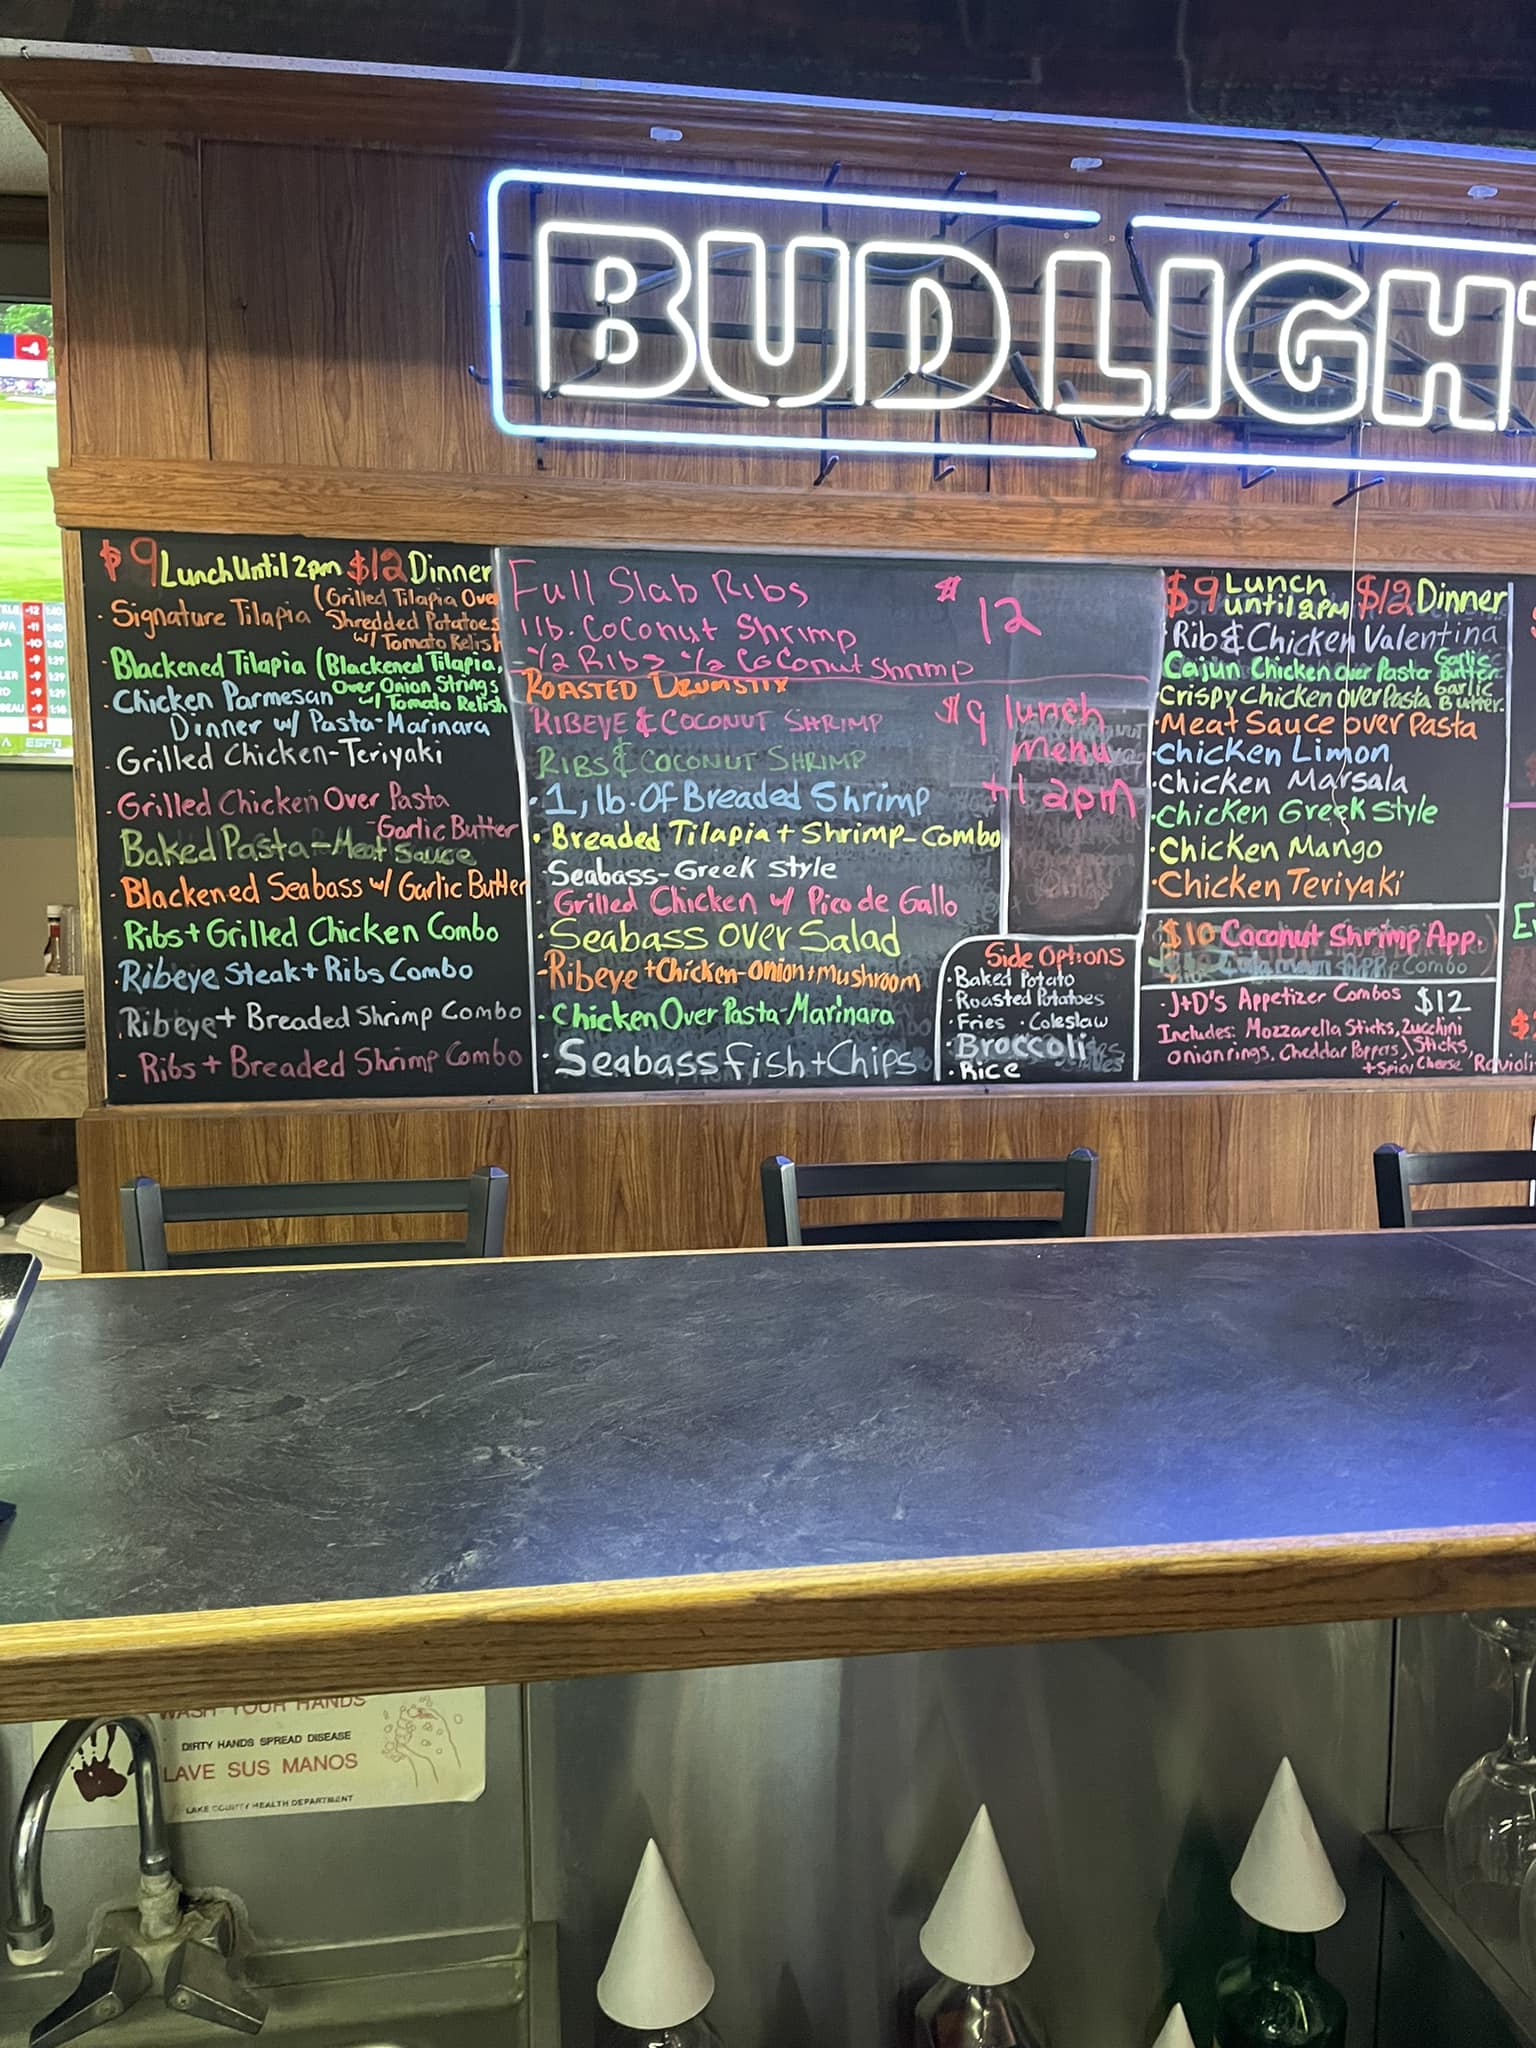 BUD LIGHT
-4
ESPN
$9 Lunch Until 2pm $12 Dinner
· Signature Tilapia (Grilled Tilapia Over
Shredded Potatoes
w/ Tomato Relish
· Blackened Tilapia (Blackened Tilapia,
Over Onion Strings
w/ Tomato Relish
· Chicken Parmesan
Dinner w/ Pasta-Marinara
· Grilled Chicken-Teriyaki
· Grilled Chicken Over Pasta
-Garlic Butter
Baked Pasta-Meat Sauce
· Blackened Seabass w/ Garlic Butter
· Ribs + Grilled Chicken Combo
· Ribeye Steak + Ribs Combo
· Ribeye + Breaded Shrimp Combo
- Ribs + Breaded Shrimp Combo
Full Slab Ribs
1lb. Coconut Shrimp
- 1/2 Ribs 1/2 Coconut Shrimp
$12
ROASTED DRUMSTIX
RIBEYE & COCONUT SHRIMP
RIBS & COCONUT SHRIMP
$9 lunch
menu
2pm
· 1, lb. Of Breaded Shrimp
· Breaded Tilapia + Shrimp-Combo
· Seabass-Greek Style
· Grilled Chicken w/ Pico de Gallo
· Seabass over Salad
- Ribeye + Chicken-Onion + Mushroom
· Chicken Over Pasta-Marinara
· Seabass Fish + Chips
Side Options
· Baked Potato
- Roasted Potatoes
· Fries · Coleslaw
· Broccoli
· Rice
$9 Lunch until 2PM $12 Dinner
· Rib & Chicken Valentina
Cajun Chicken over Pasta Garlic Butter
· Crispy Chicken over Pasta Garlic Butter.
· Meat Sauce over Pasta
· Chicken Limon
· Chicken Marsala
· Chicken Greek Style
· Chicken Mango
· Chicken Teriyaki
$10 Coconut Shrimp App.
· J+D's Appetizer Combos $12
Includes: Mozzarella Sticks, Zucchini Sticks,
onion rings, Cheddar Poppers
+ Spicy Cheese Ravioli
WASH YOUR HANDS
DIRTY HANDS SPREAD DISEASE
LAVE SUS MANOS
LAKE COUNTY HEALTH DEPARTMENT